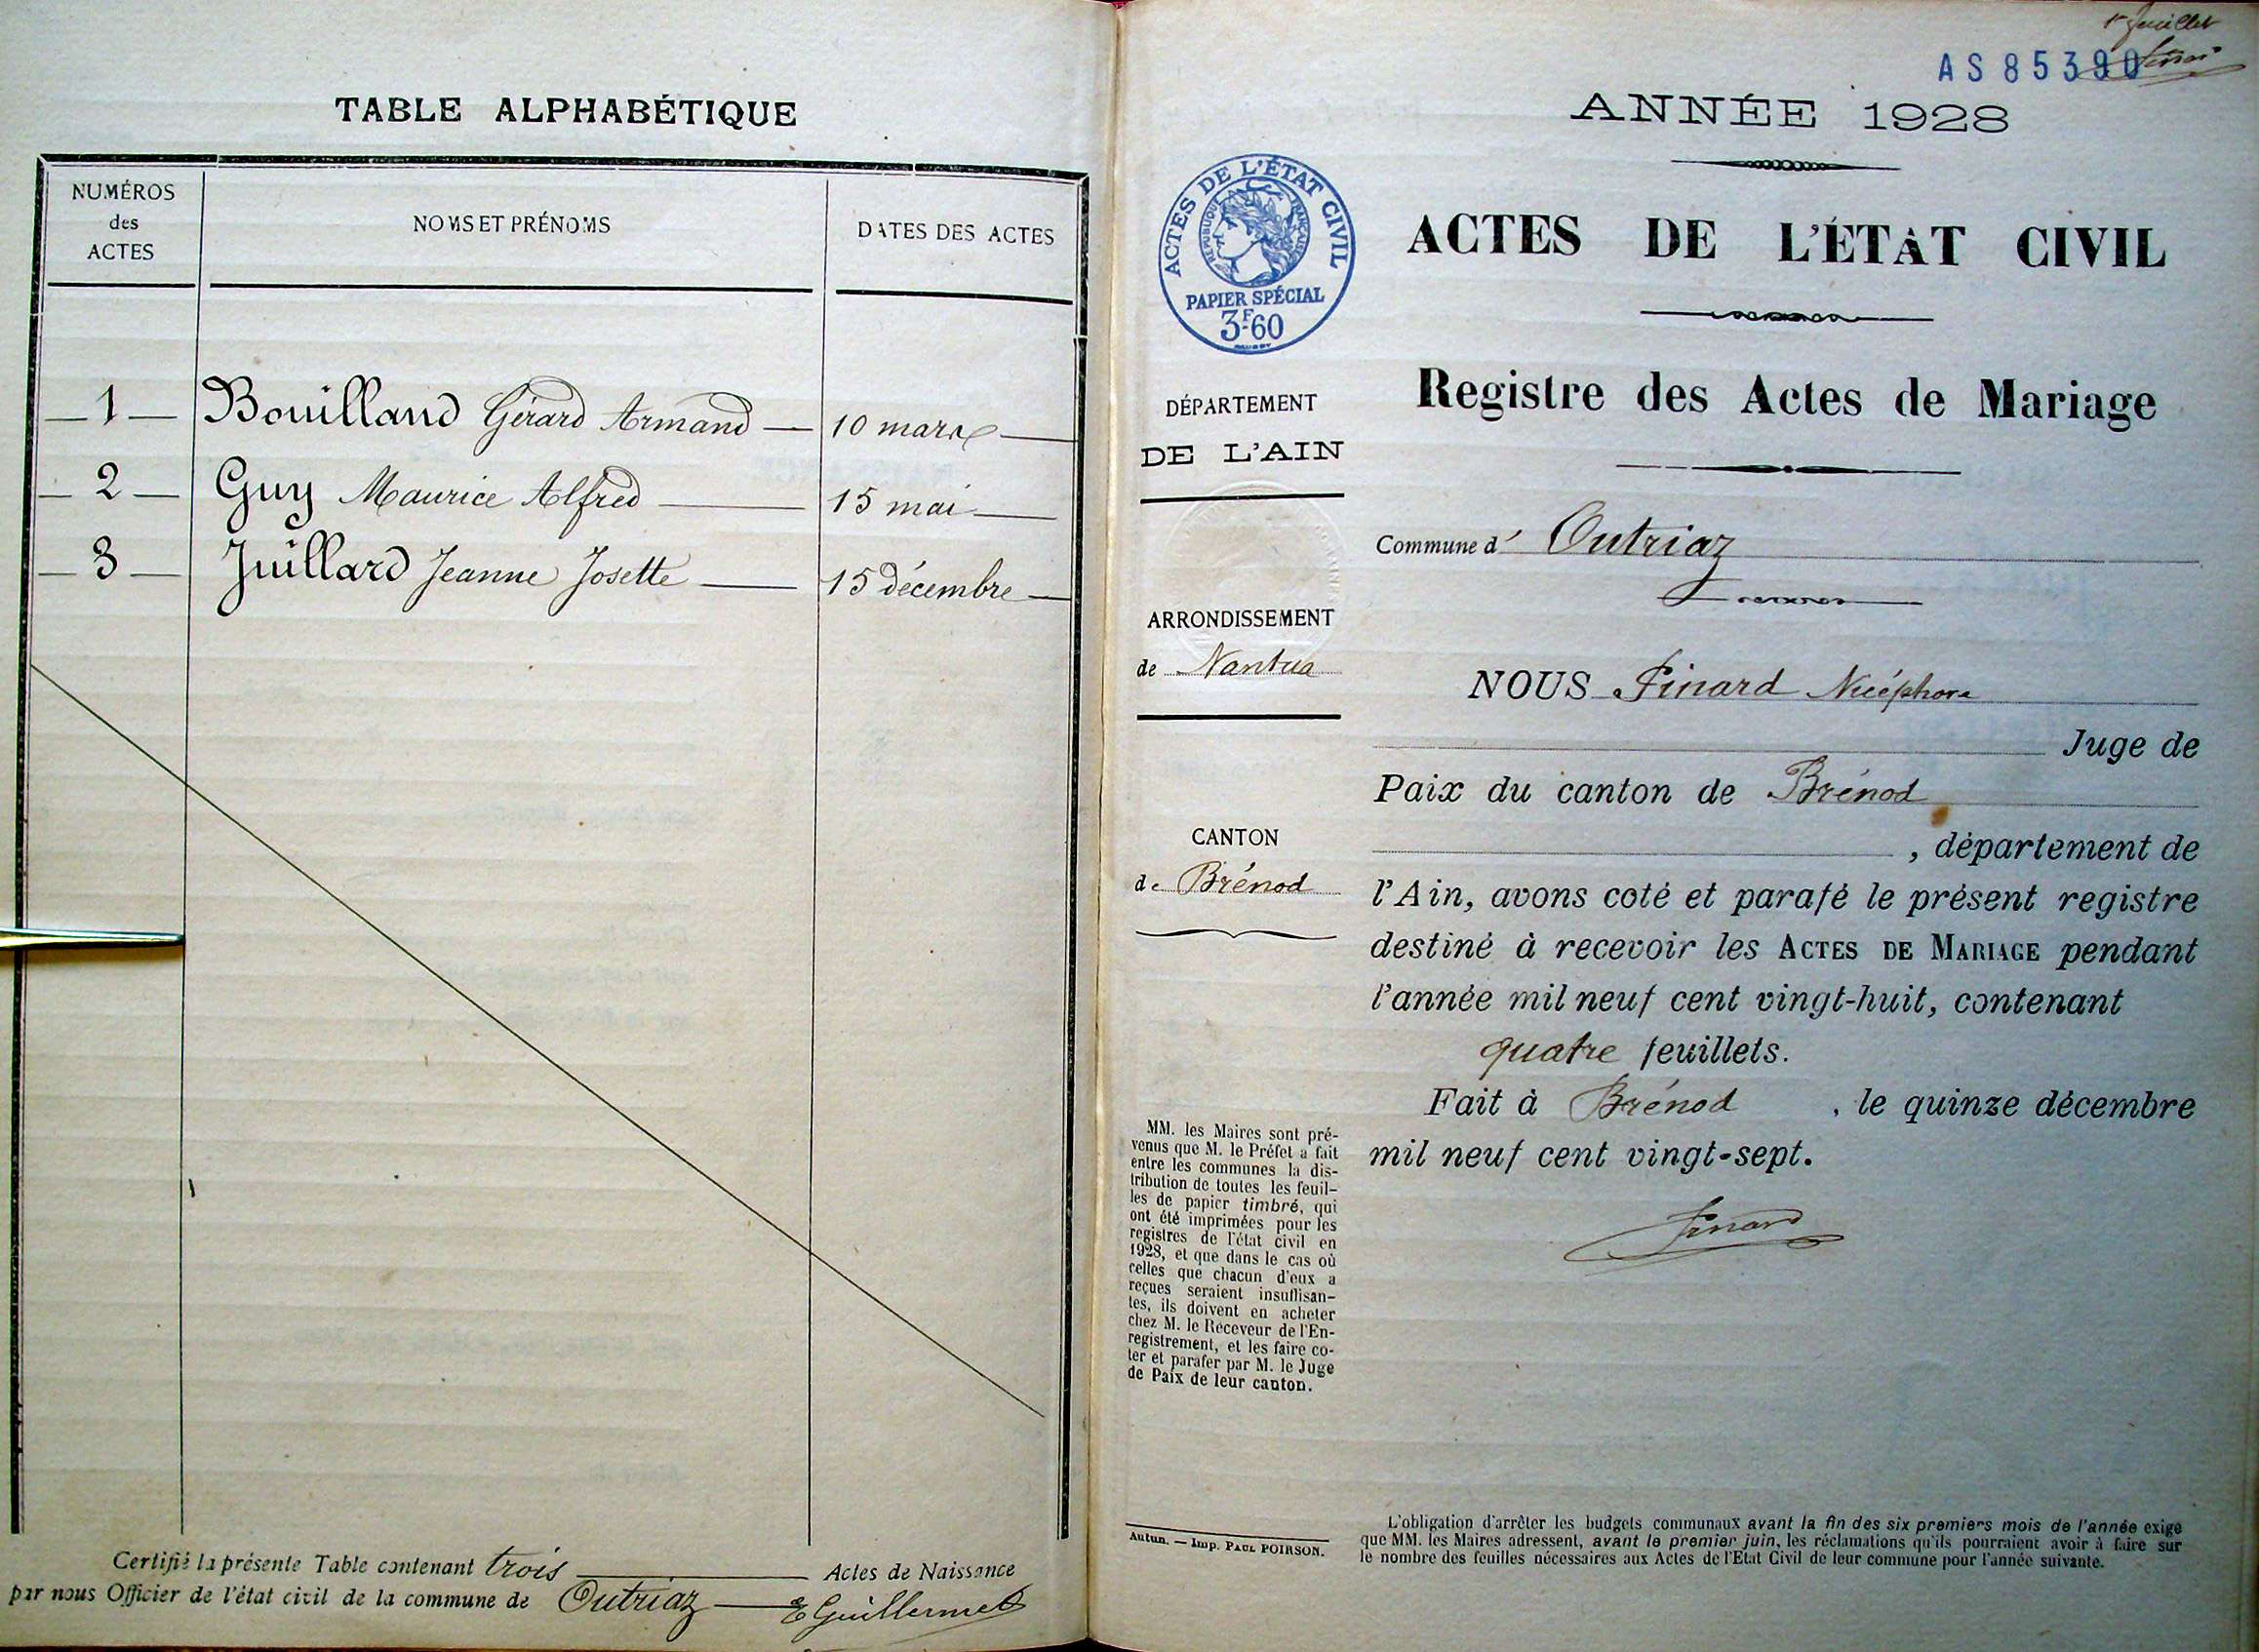 TABLE ALPHABÉTIQUE
NUMÉROS
des
ACTES
NOMS ET PRÉNOMS
DATES DES ACTES
1 Bouilland Gérard Armand 10 mars
2 Guy Maurice Alfred 15 mai
3 Juillard Jeanne Josette 15 décembre
Certifié la présente Table contenant trois Actes de Naissance
par nous Officier de l'état civil de la commune de Outriaz E Guillermet
1er feuillet
AS 85390
ANNÉE 1928
ACTES DE L'ÉTAT CIVIL
RÉPUBLIQUE FRANÇAISE
PAPIER SPÉCIAL
3F60
ACTES DE L'ÉTAT CIVIL
Registre des Actes de Mariage
DÉPARTEMENT
DE L'AIN
Commune d' Outriaz
ARRONDISSEMENT
de Nantua
CANTON
de Brénod
NOUS Finard Nicéphore
Juge de
Paix du canton de Brénod
, département de
l'Ain, avons coté et parafé le présent registre
destiné à recevoir les ACTES DE MARIAGE pendant
l'année mil neuf cent vingt-huit, contenant
quatre feuillets.
Fait à Brénod, le quinze décembre
mil neuf cent vingt-sept.
Finard
MM. les Maires sont pré-
venus que M. le Préfet a fait
entre les communes la dis-
tribution de toutes les feuil-
les de papier timbré, qui
ont été imprimées pour les
registres de l'état civil en
1928, et que dans le cas où
celles que chacun d'eux a
reçues seraient insuffisan-
tes, ils doivent en acheter
chez M. le Receveur de l'En-
registrement, et les faire co-
ter et parafer par M. le Juge
de Paix de leur canton.
Autun. — Imp. PAUL POIRSON.
L'obligation d'arrêter les budgets communaux avant la fin des six premiers mois de l'année exige
que MM. les Maires adressent, avant le premier juin, les réclamations qu'ils pourraient avoir à faire sur
le nombre des feuilles nécessaires aux Actes de l'Etat Civil de leur commune pour l'année suivante.